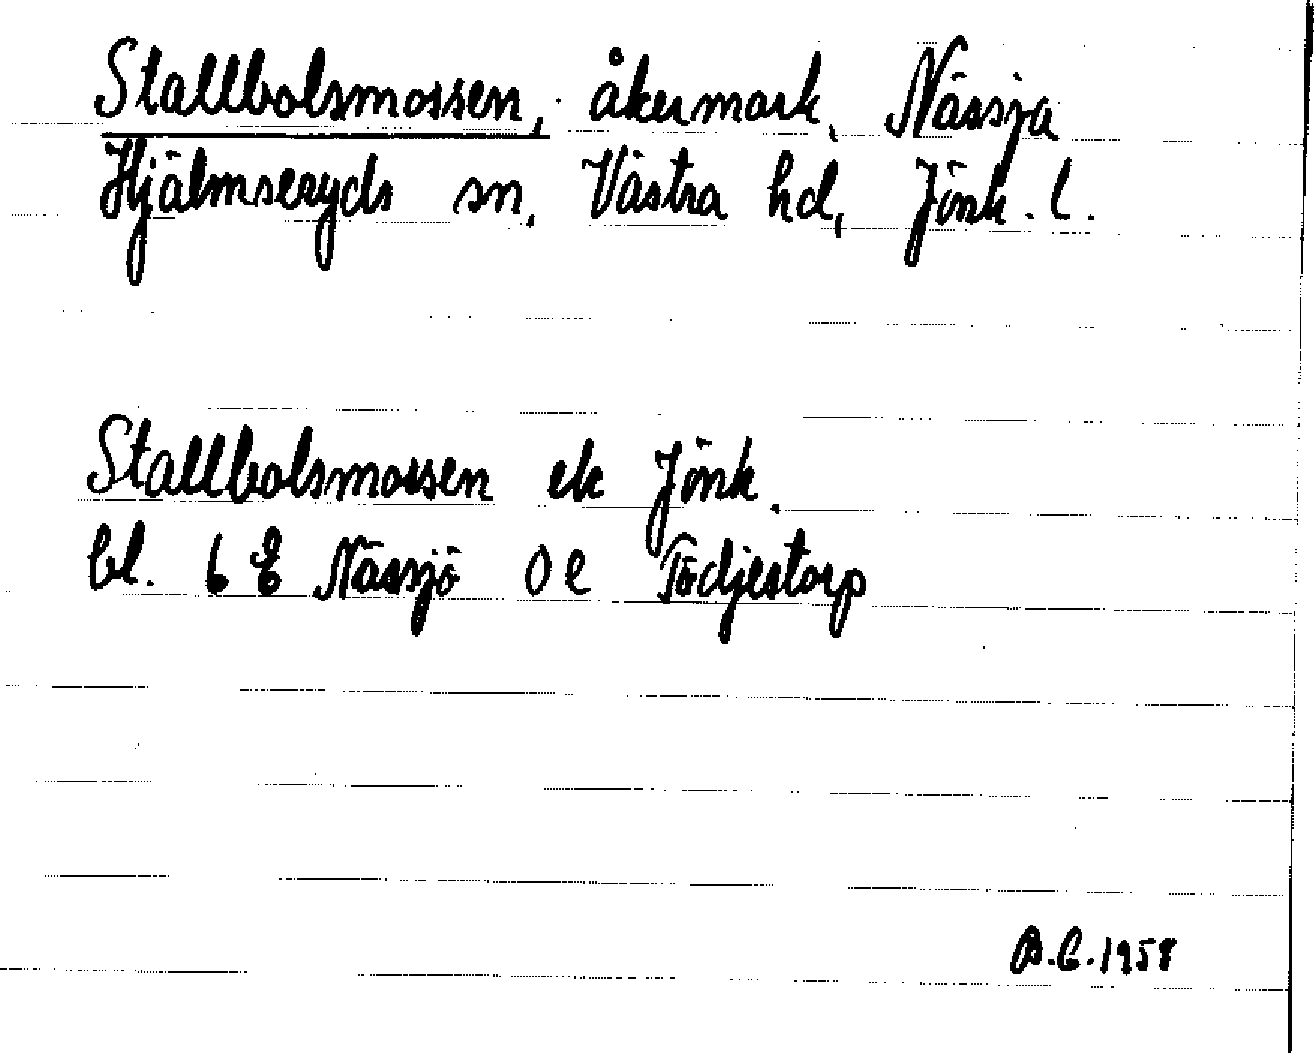 Stallbolsmossen, åkermark, Nässja
Hjälmseryds sn, Västra hd, Jönk. l.
Stallbolsmossen ek Jönk.
bl. 6 E Nässjö 0 e Tädjestorp
B.C. 1958